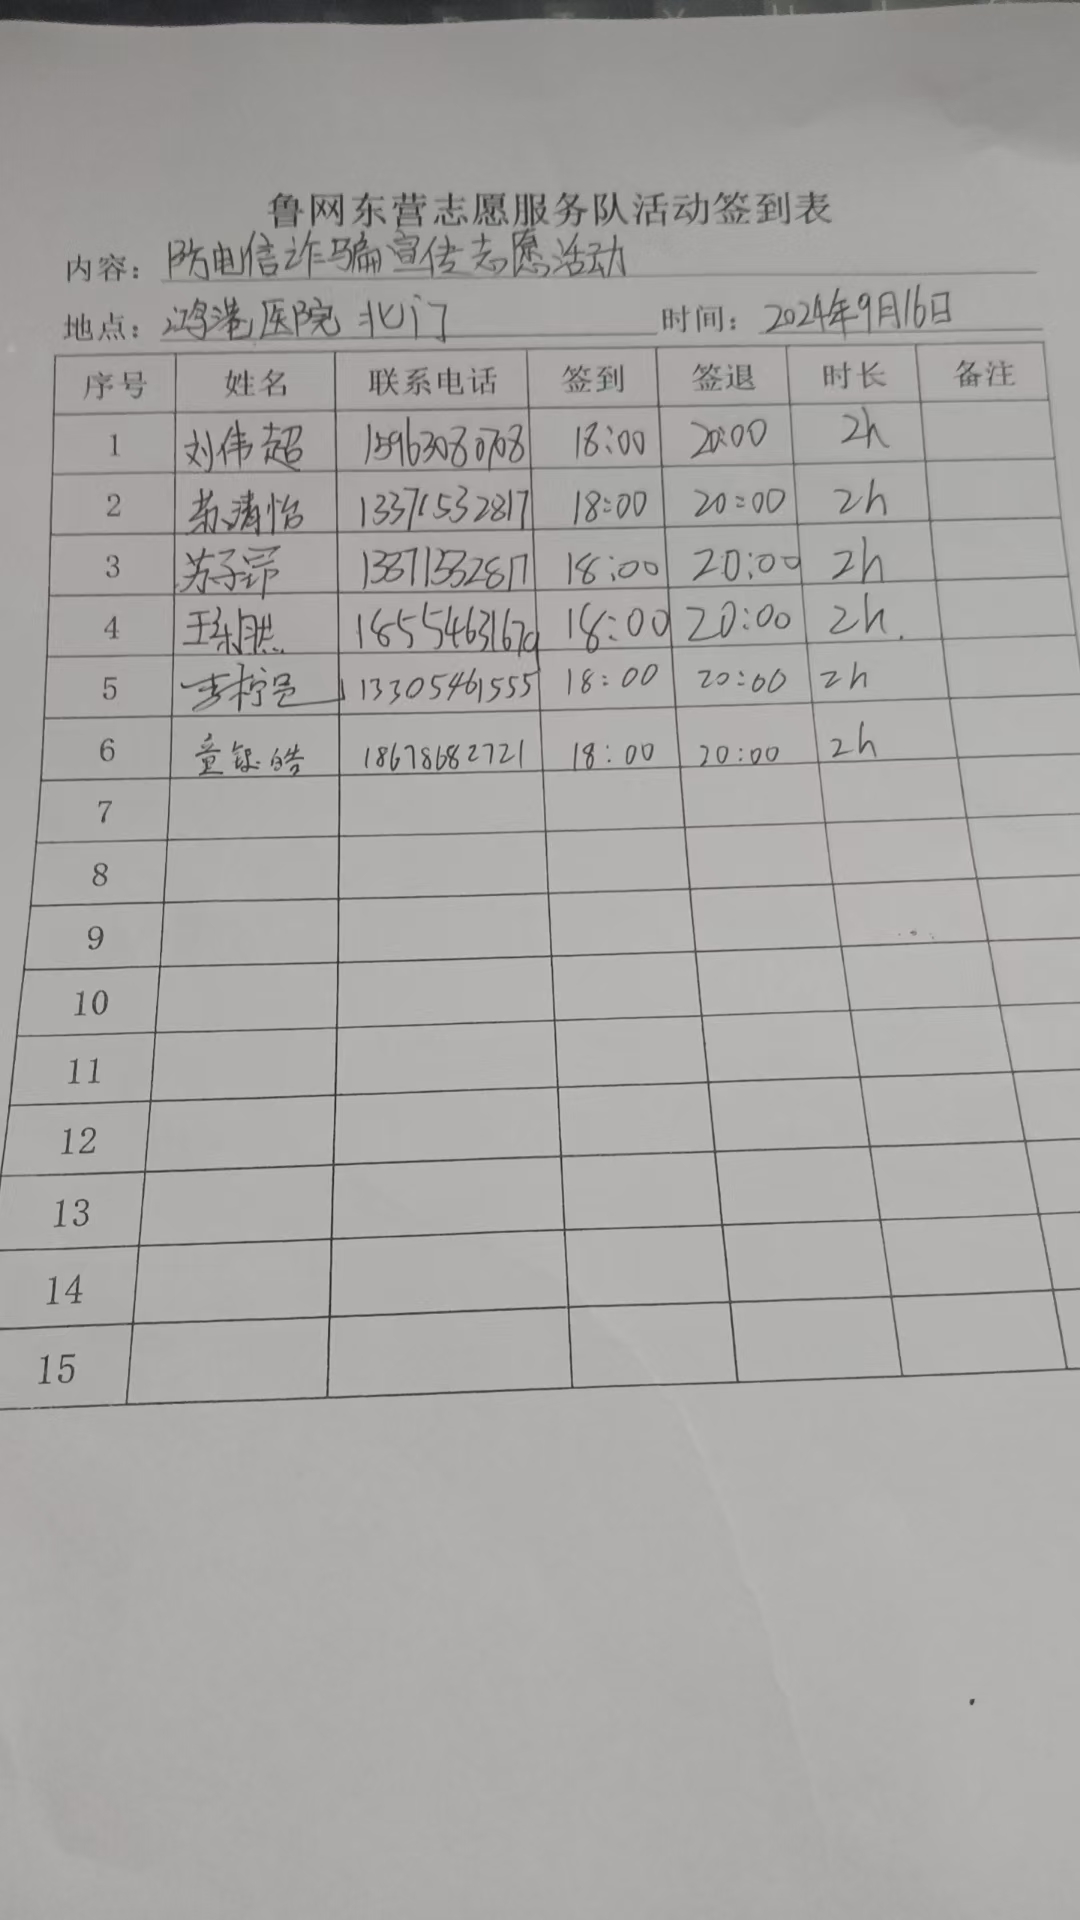 鲁网东营志愿服务队活动签到表
内容：防电信诈骗宣传志愿活动
地点：鸿港医院 北门 时间：2024年9月16日
序号 姓名 联系电话 签到 签退 时长 备注
1 刘伟超 15963080708 18:00 20:00 2h
2 苏清怡 13371532817 18:00 20:00 2h
3 苏子昂 13371532817 18:00 20:00 2h
4 王 18554631679 18:00 20:00 2h.
5 李柠邑 13305461555 18:00 20:00 2h
6 童 皓 18678682721 18:00 20:00 2h
7
8
9
10
11
12
13
14
15